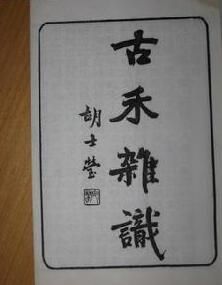 古禾雜識
胡士瑩